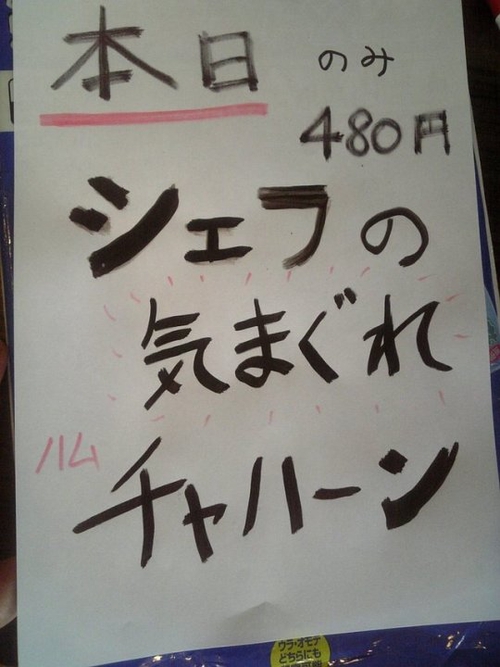 本日 のみ
480円
シェフの
気まぐれ
ハム
チャハーン
ウラ・オモテ
どちらにも